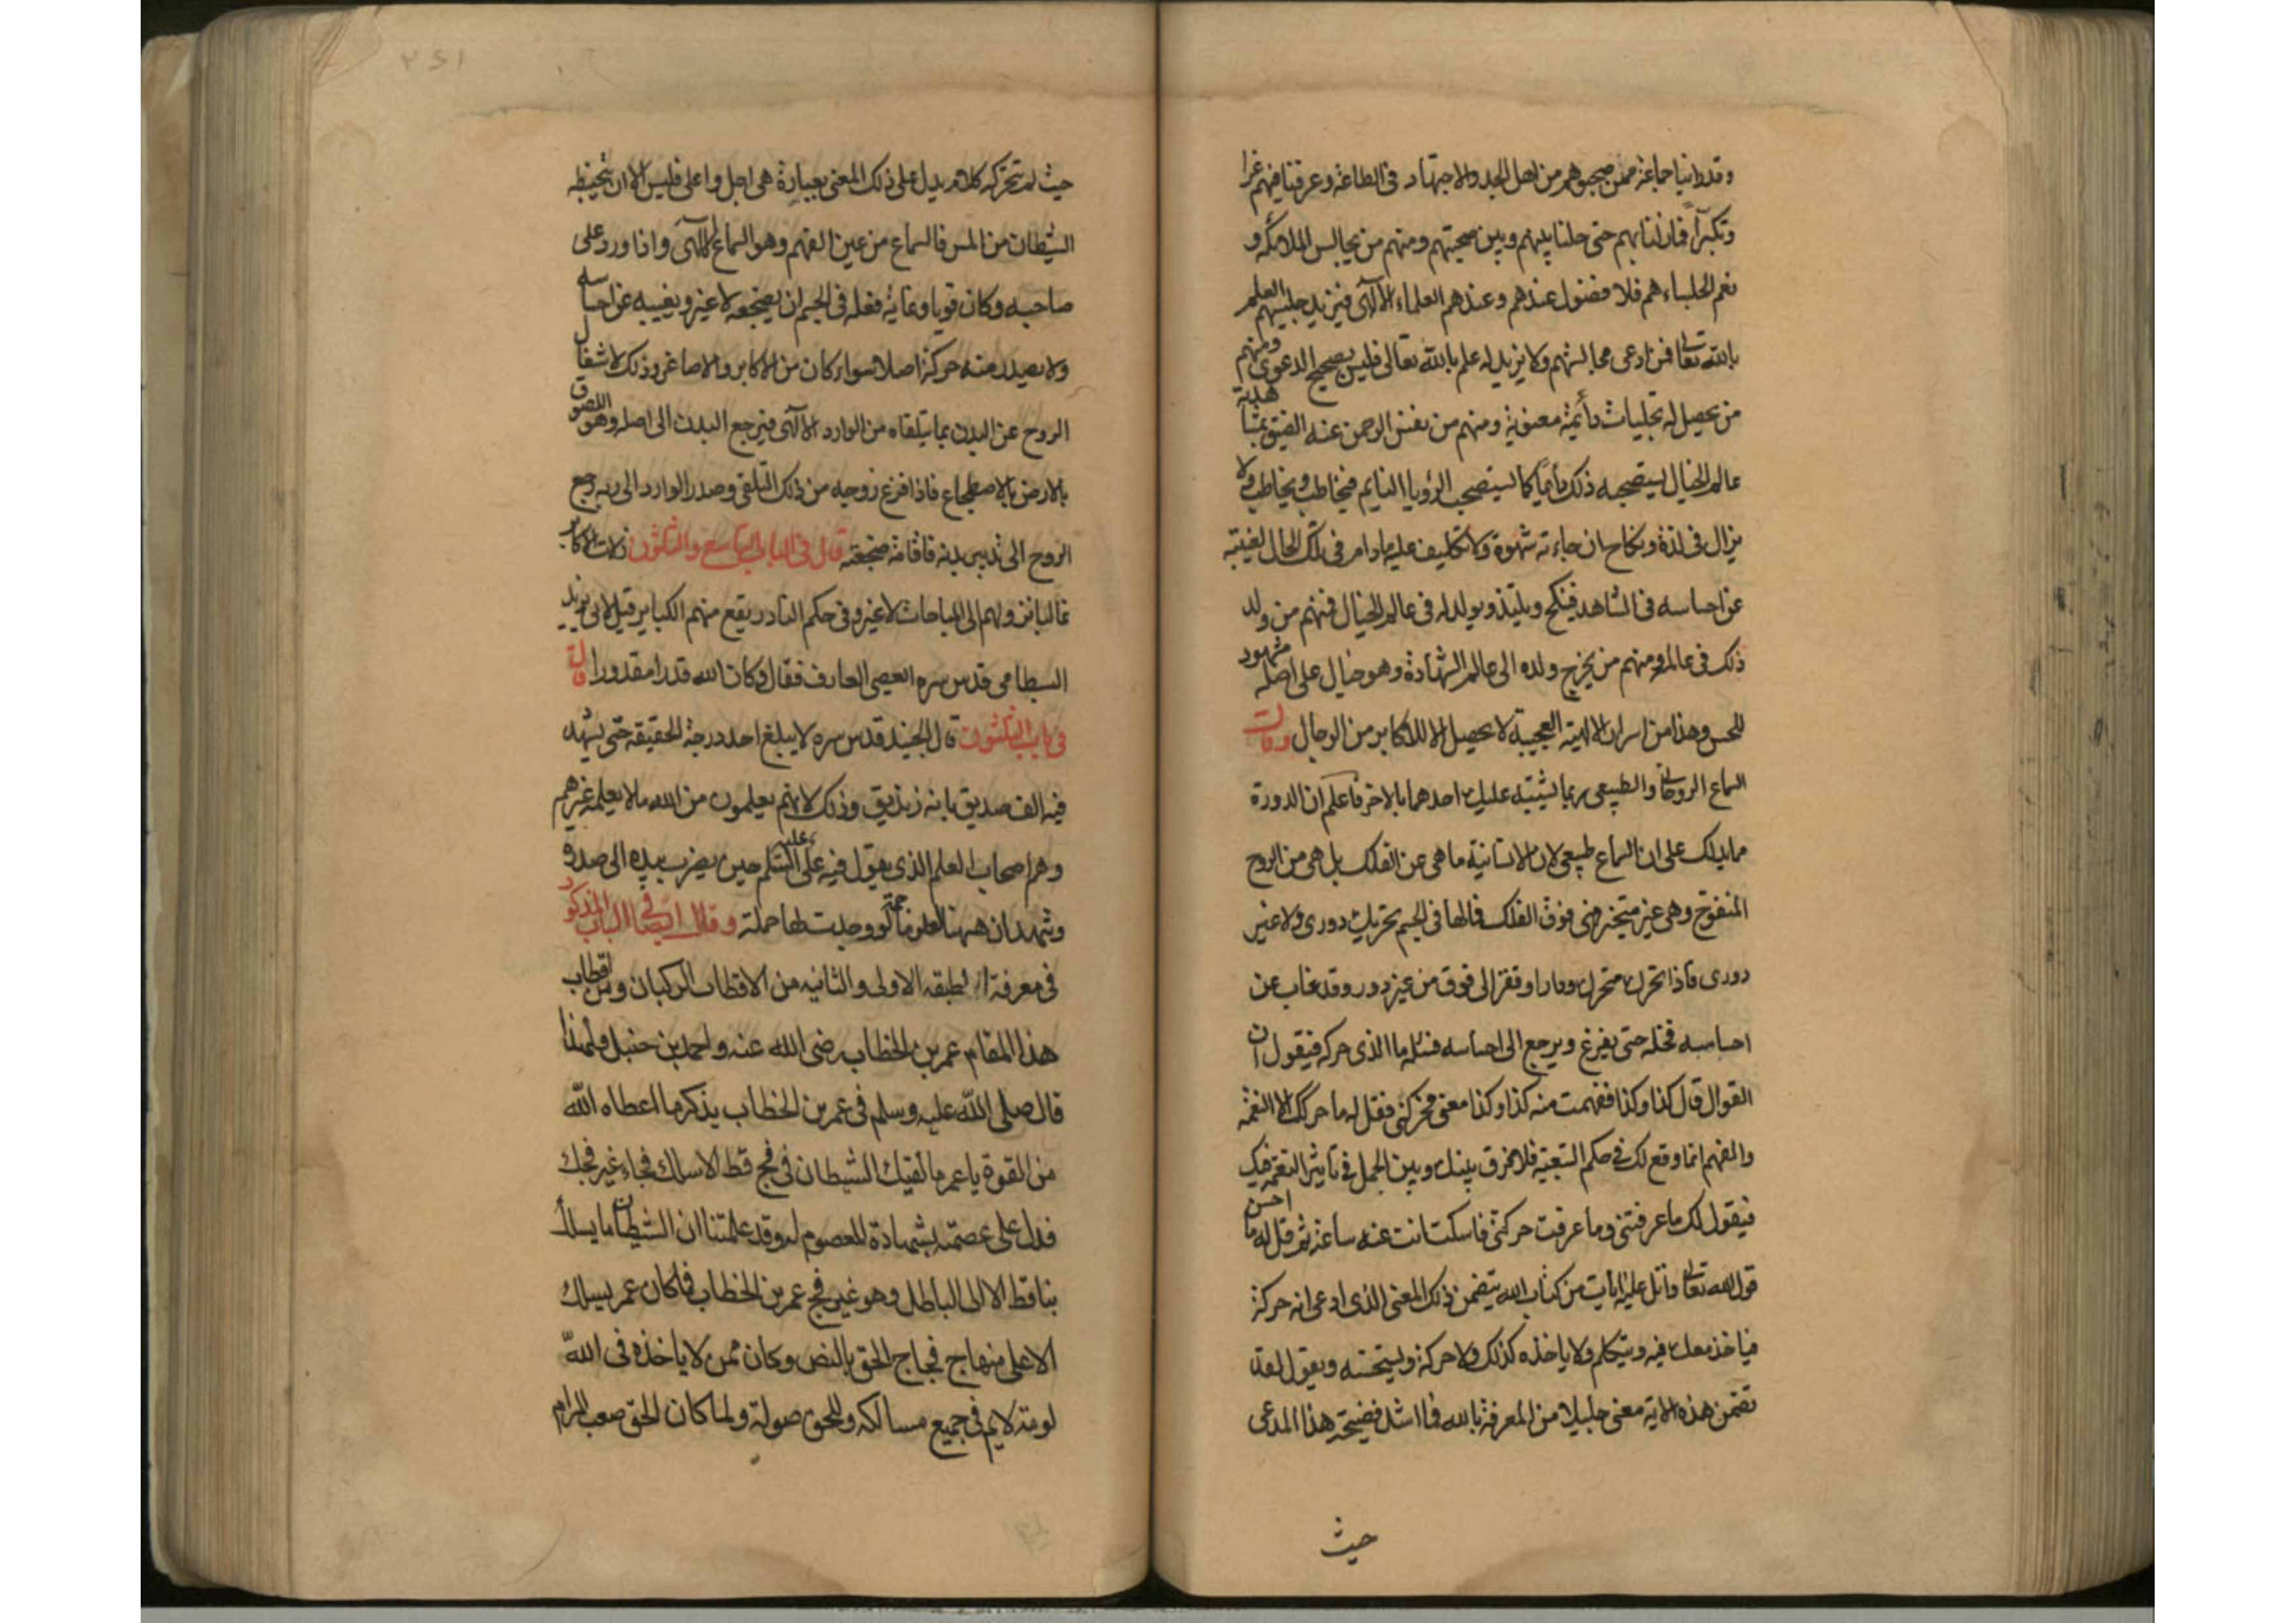 وقد راينا جماعة ممن صحبوهم من اهل الجد والاجتهاد فى الطاعة وعرفنا فيهم عزا
وتكبرا فما زلنا بهم حتى حلنا بينهم وبين صحبتهم ومنهم من يجالس الملائكة و
نعم الجلساء هم فلا فضول عندهم وعندهم العلماء الالهى فيزيد جليسهم العلم
بالله تعالى فمن ادعى مجالستهم ولا يزيد له علم بالله تعالى فليس بصحيح الدعوى ومنهم
من يحصل له تجليات دائمة معنوية ومنهم من نفس الرحمن عنه الضيق بمشاهدة
عالم الخيال يستصحبه ذلك دائما كما يستصحب الرؤيا النايم فيخاطب ويخاطب ولا
يزال فى لذة ونكاح ان جاءته شهوة ولا تكليف عليه مادام فى تلك الحال لغيبته
عن احساسه فى الشاهد فينكح ويلتذ ويولد له فى عالم الخيال فمنهم من ولد
ذلك فى عالمه ومنهم من يخرج ولده الى عالم الشهادة وهو خيال على اصله مشهود
للحس وهذا من اسرار الالهية العجيبة لا يحصل الا للاكابر من الرجال وقال
السماع الروحانى والطبيعى ربما يشتبه عليك احدهما بالاخر فاعلم ان الدورة
مما يدلك على ان السماع طبيعى لان الانسانية ما هى عن الفلك بل هى من الروح
المنفوخ وهى غير متحيزة فهى فوق الفلك فما لها فى الجسم تحريك دورى ولا غير
دورى فاذا تحرك متحرك ودار او قفز الى فوق من غير دور وقد غاب عن
احساسه فخله حتى يفرغ ويرجع الى احساسه فسئله ما الذى حركه فيقول ان
القوال قال كذا وكذا ففهمت منه كذا وكذا معنى فحركنى فقل له ما حركك الا النغمة
والفهم انما وقع لك فى حكم التبعية فلا فرق بينك وبين الجمل فى تاثير النغمة فيك
فيقول لك ما عرفتنى وما عرفت حركتى فاسكت انت عنه ساعة ثم قل له ما احسن
قول الله تعالى واتل عليه ايات من كتاب الله يتضمن ذلك المعنى الذى ادعى انه حركة
فياخذ معك فيه ويتكلم ولا ياخذه كذلك ولا حركة ويستحسنه ويقول لقد
تضمن هذه الاية معنى جليلا من المعرفة بالله فما اشد فضيحة هذا المدعى
حيث
حيث لم تحركه كلام يدل على ذلك المعنى بعبارة هى اجل واعلى فليس الا ان يتخبطه
الشيطان من المس فالسماع من عين الفهم وهو السماع الالهى واذا ورد على
صاحبه وكان قويا وغاية فعله فى الجسم ان يضجعه لا غير ويغيبه عن احساسه
ولا يصدر منه حركة اصلا سواء كان من الاكابر والاصاغر وذلك لاشغال
الروح عن البدن بما يتلقاه من الوارد الالهى فيرجع البدن الى اصله وهو اللصوق
بالارض بالاضطجاع فاذا فرغ روحه من ذلك التلقى وصدر الوارد الى ربه رجع
الروح الى تدبير بدنه فاقامه من ضجعته قال فى الباب التاسع والثلثون زلات الاكابر
غالبا نزولهم الى المباحات لا غير وفى حكم النادر يقع منهم الكباير قيل لابى يزيد
البسطامى قدس سره ايعصى العارف فقال وكان الله قدرا مقدورا قال
فى باب الثلثون قال الجنيد قدس سره لا يبلغ احد درجة الحقيقة حتى يشهد
فيه الف صديق بانه زنديق وذلك لانهم يعلمون من الله ما لا يعلمه غيرهم
وهم اصحاب العلم الذى يقول فيه على عليه السلم حين يضرب بيده الى صدره
وشهد ان ههنا لعلوما جمة لو وجدت لها حملة وقال ايضا فى الباب المذكور
فى معرفة الطبقة الاولى والثانيه من الاقطاب الركبان ومن اقطاب
هذا المقام عمر بن الخطاب رضى الله عنه واحمد بن حنبل ولهذا
قال صلى الله عليه وسلم فى عمر بن الخطاب يذكر ما اعطاه الله
من القوة يا عمر ما لقيك الشيطان فى فج قط الا سلك فجاء غير فجك
فدل على عصمته بشهادة المعصوم له وقد علمتنا ان الشيطان ما يسلك
بنا قط الا الى الباطل وهو غير فج عمر بن الخطاب فما كان عمر يسلك
الا على منهاج فجاج الحق بالنص وكان ممن لا ياخذه فى الله
لومة لايم فى جميع مسالكه وللحق صولة ولما كان الحق صعب المرام